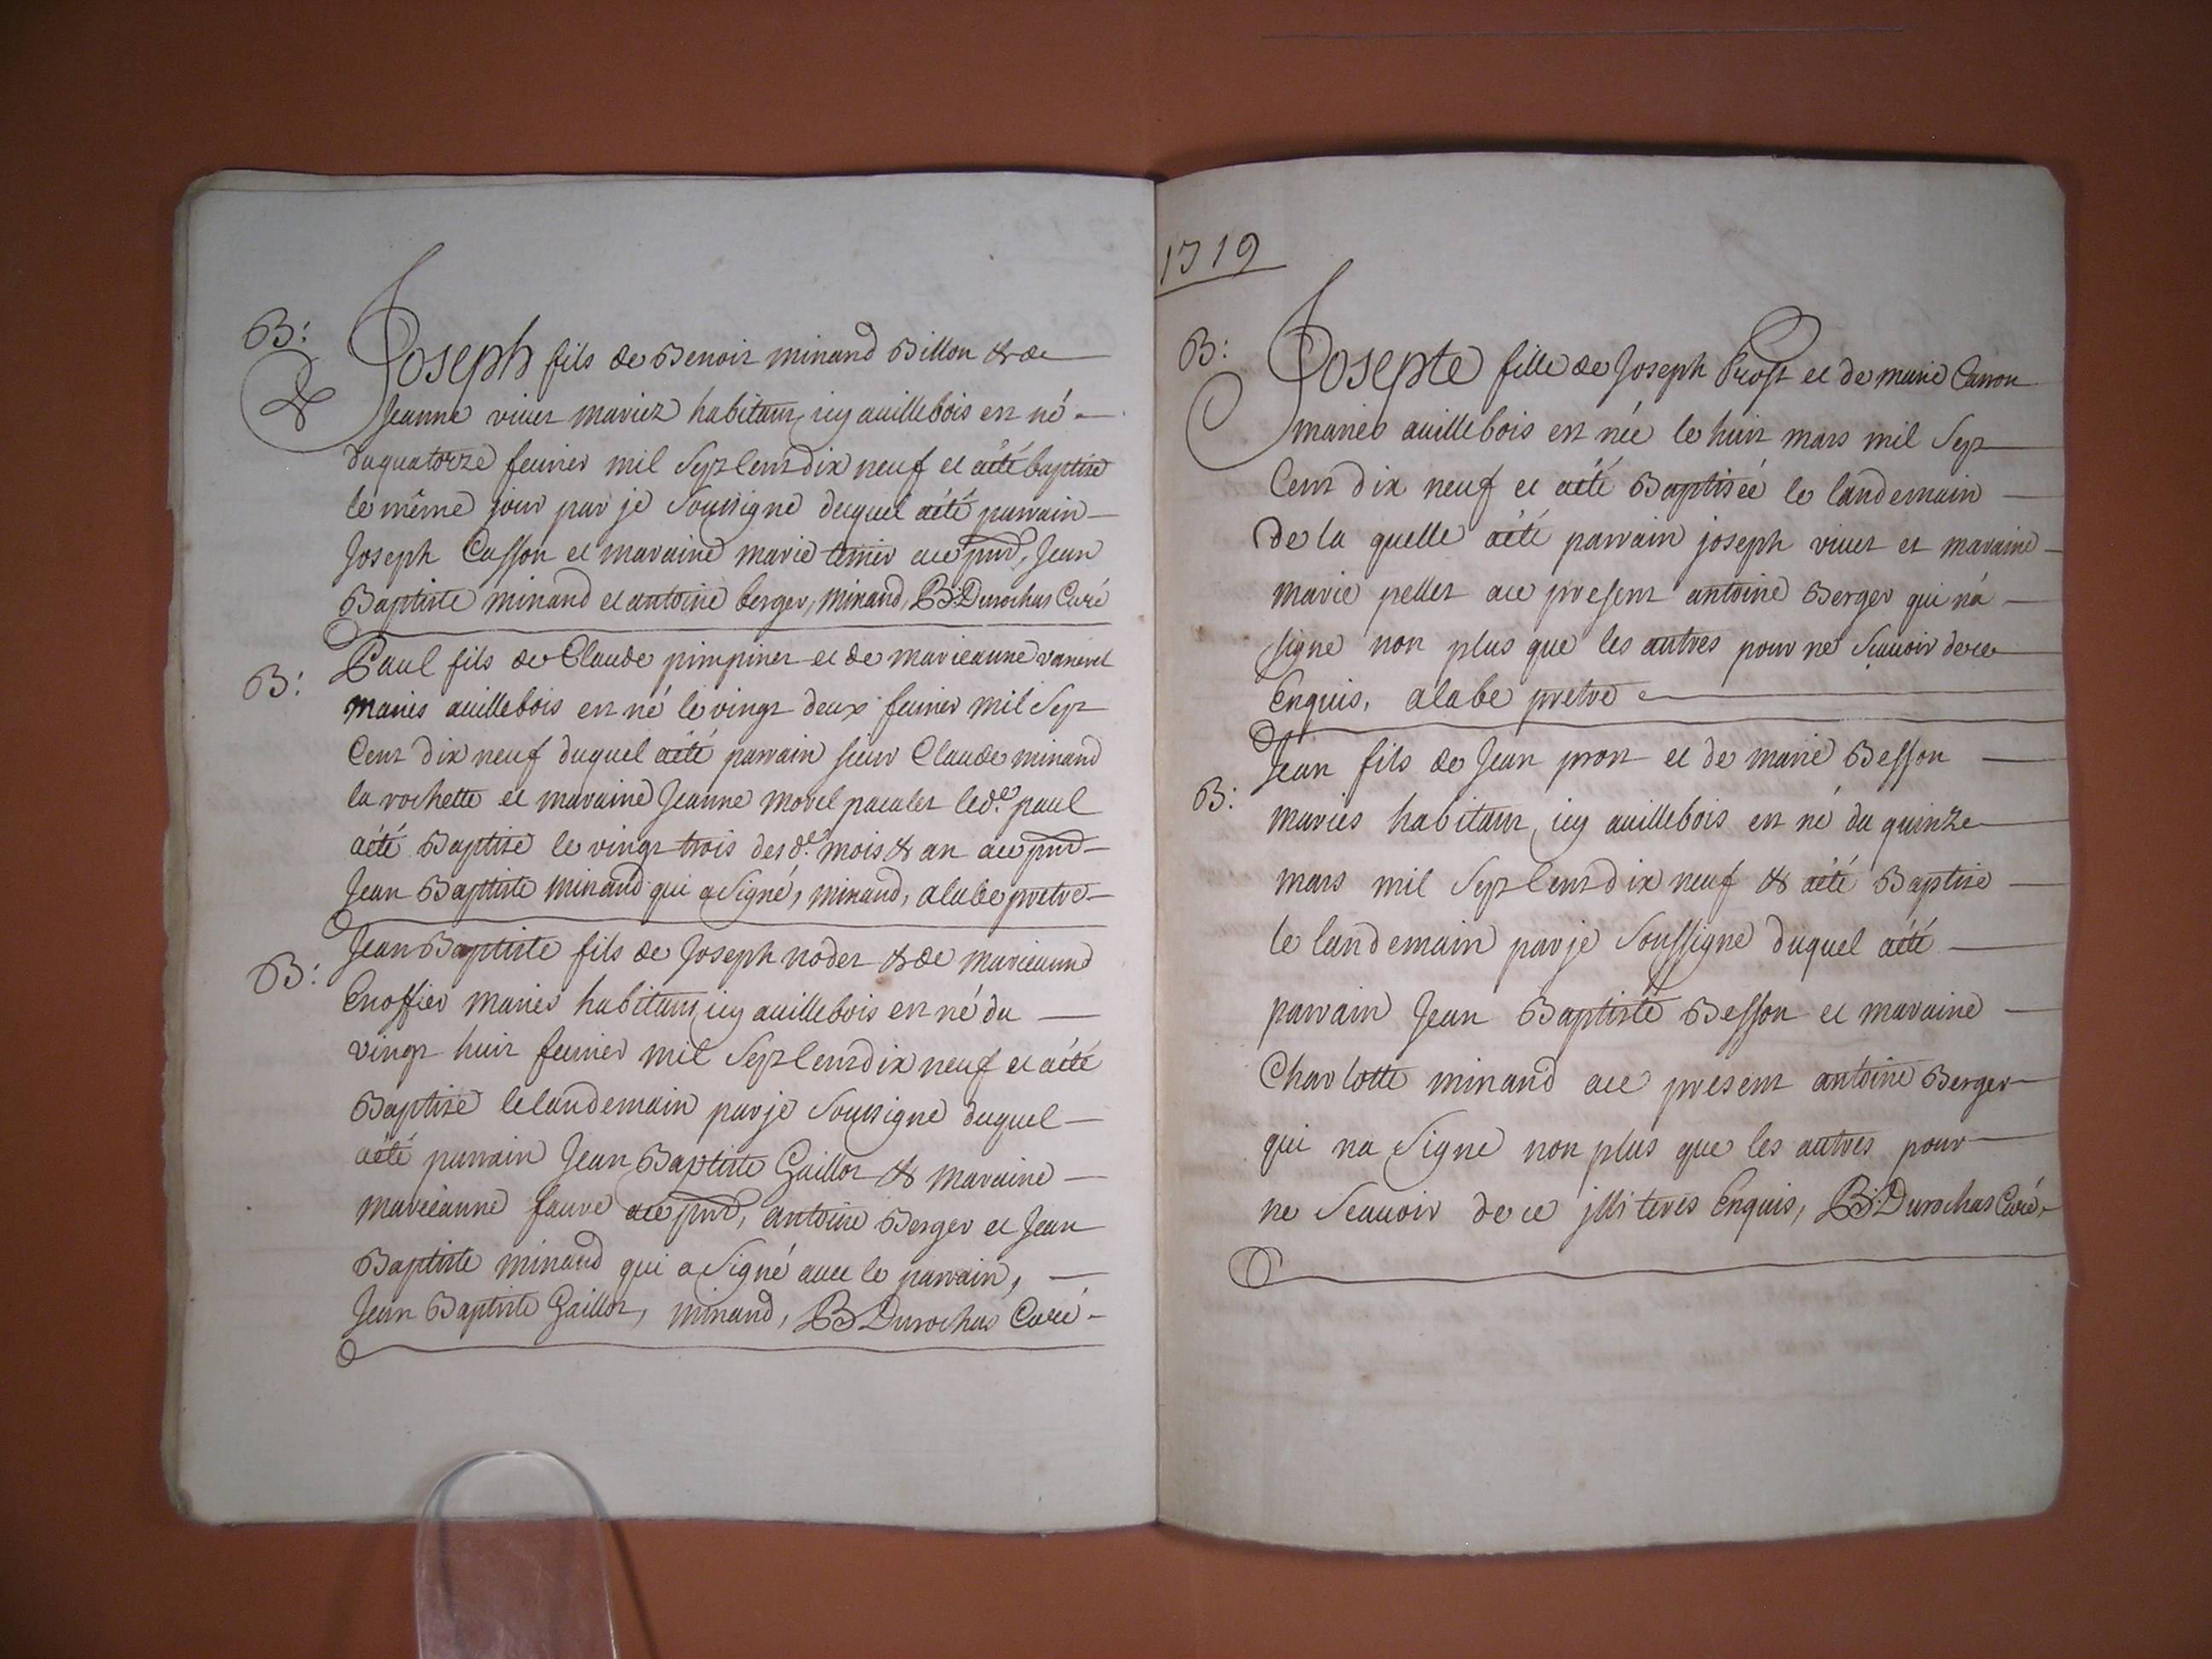 B:
Joseph fils de Benoit minand Billon & de
Jeanne viuet mariez habitant icy auillebois est né
du quatorze feurier mil Sept Cent dix neuf et aété baptise
le même jour par je Soussigne duquel aété parrain
Joseph Casson et maraine marie ace pnt, Jean
Baptiste minand et antoine berger, minand, B: Durochas Curé
B:
Paul fils de Claude pimpinet et de marieanne vaneret
mariés auillebois est né le vingt deux feurier mil Sept
Cent dix neuf duquel aété parrain sieur Claude minand
la rochette et maraine Jeanne morel pacalet led.t paul
aété Baptisé le vingt trois desd.t mois & an ace pnt
Jean Baptiste minand qui a Signé, minand, alabe pretre
B:
Jean Baptiste fils de Joseph nodet & de marieanne
Croffier mariés habitant icy auillebois est né du
vingt huit feurier mil Sept Cent dix neuf et aété
Baptisé lelandemain par je Soussigne duquel
aété parrain Jean Baptiste Gaillot & maraine
marieanne faure ace pnt, antoine Berger et Jean
Baptiste minand qui a Signé auec le parrain,
Jean Baptiste Gaillot, minand, B Durochas Curé
1719
B:
Josepte fille de Joseph Prost et de marie Carron
mariés auillebois est née le huit mars mil Sept
Cent dix neuf et aété Baptisée le landemain
de la quelle aété parrain joseph viuet et maraine
marie pellet ace present antoine Berger qui na
signe non plus que les autres pour ne Scauoir dece
Enquis, alabe pretre
B:
Jean fils de Jean prost et de marie Besson
mariés habitant icy auillebois est né du quinze
mars mil Sept Cent dix neuf & aété Baptisé
le landemain par je Soussigne duquel aété
parrain Jean Baptiste Besson et maraine
Charlotte minand ace present antoine Berger
qui na Signe non plus que les autres pour
ne Scauoir de ce jlliterés Enquis, B: Durochas Curé,